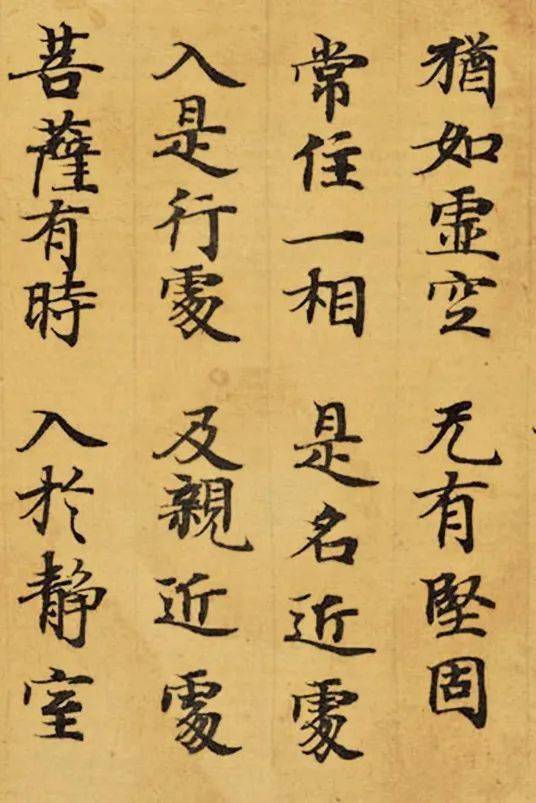 猶如虛空 无有堅固
常住一相 是名近處
入是行處 及親近處
菩薩有時 入於靜室